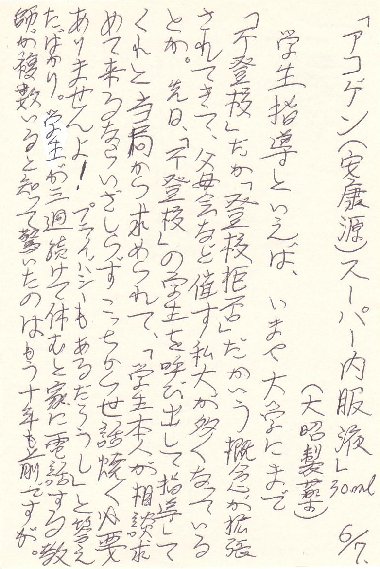 「アコゲン(安康源)スーパー内服液」30ml 6/7.
(大昭製薬)
学生指導といえば、いまや大学にまで
「不登校」だか「登校拒否」だかいう概念が拡張
されてきて、父母会など催す私大が多くなっている
とか。先日、「不登校」の学生を呼び出して指導して
くれと当局から求められて、「学生本人が相談求
めて来るならいざしらずこっちから世話焼く必要
ありませんよ!プライバシーもあるだろうし」と答え
たばかり。学生が三週続けて休むと家に電話する教
師が複数いると知って驚いたのはもう十年も前ですが。